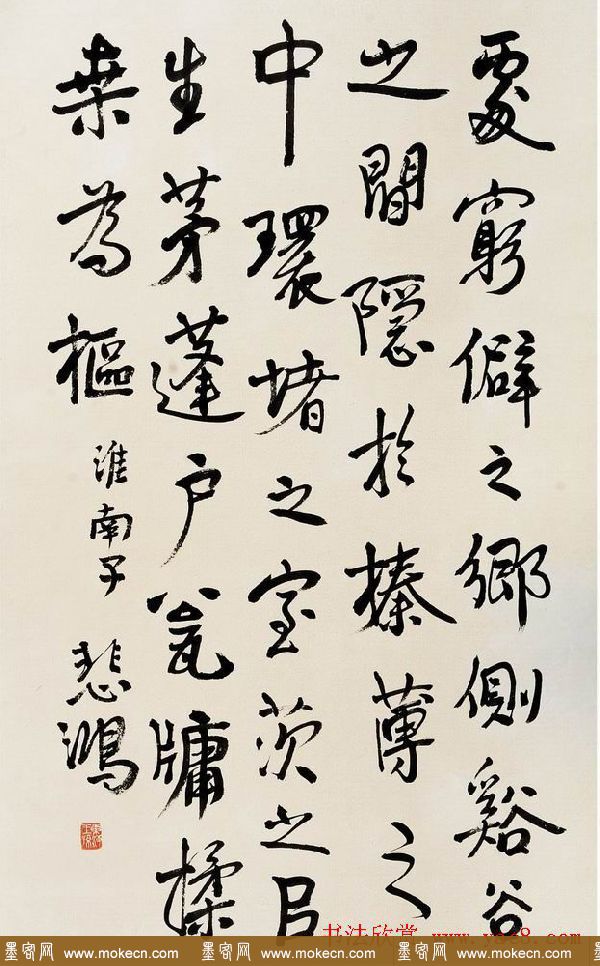 處窮僻之鄉側谿谷
之間隱於榛薄之
中環堵之室茨之㠯
生茅蓬户瓮牖揉
桒為樞
淮南子
悲鴻
书法欣赏
墨客网 www.mokecn.com 墨客网 www.mokecn.com 墨客网 www.mokecn.com